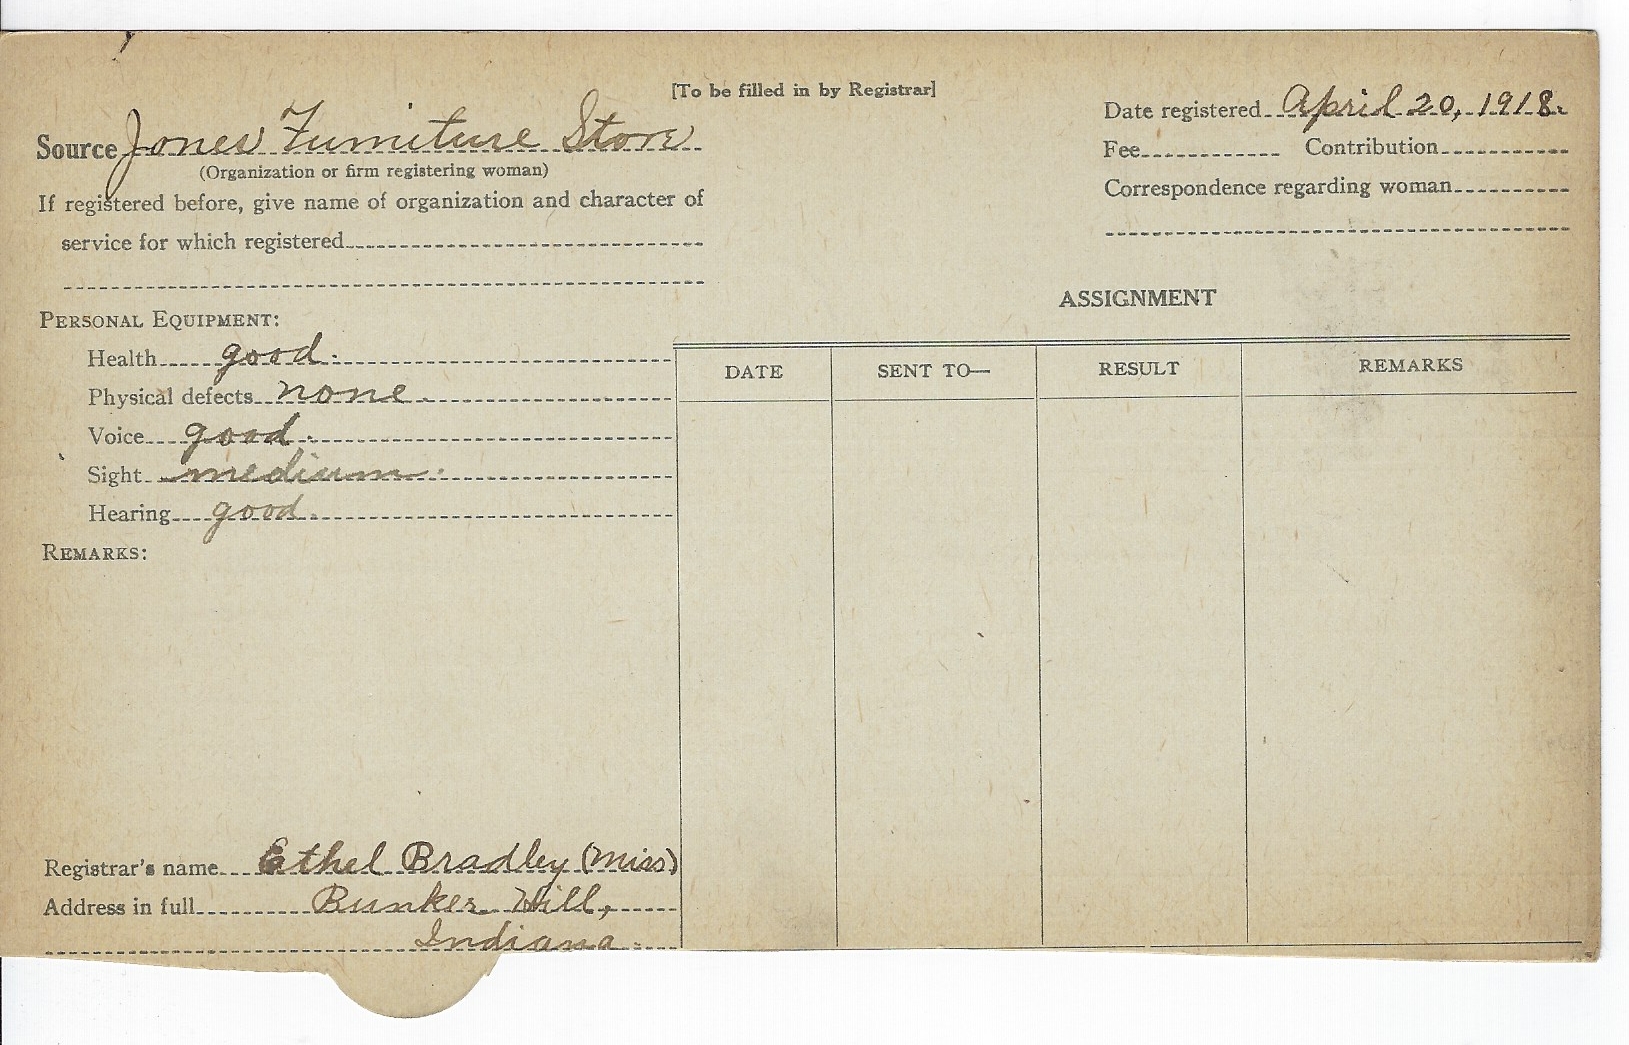 [To be filled in by Registrar]
Source Jones Furniture Store
(Organization or firm registering woman)
If registered before, give name of organization and character of
service for which registered
Date registered April 20, 1918.
Fee Contribution
Correspondence regarding woman
PERSONAL EQUIPMENT:
Health good.
Physical defects none.
Voice good.
Sight medium.
Hearing good.
REMARKS:
Registrar's name Ethel Bradley (Miss)
Address in full Bunker Hill,
Indiana.
ASSIGNMENT
DATE SENT TO— RESULT REMARKS